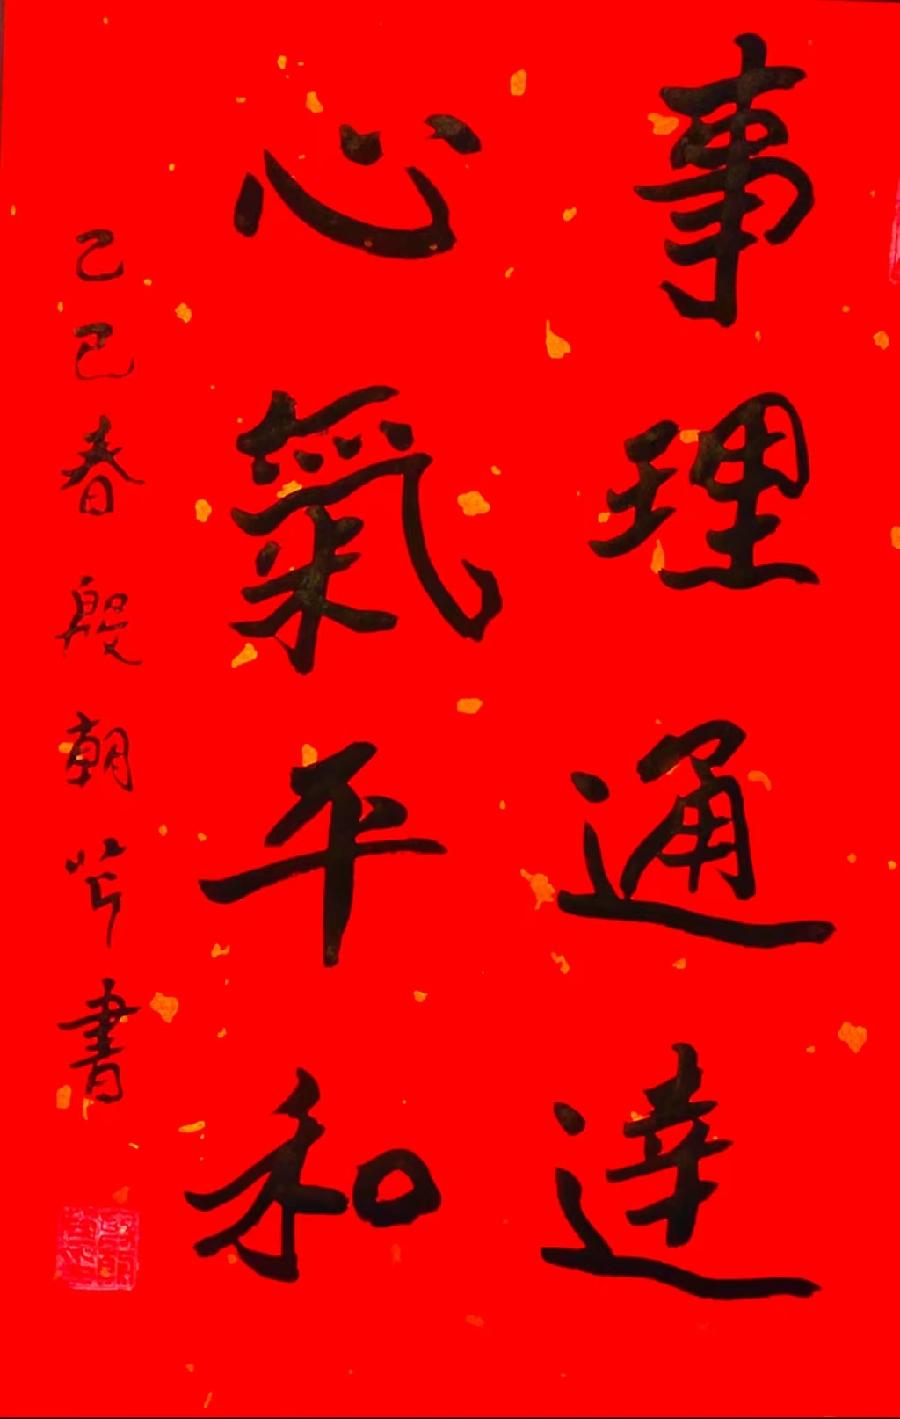 事理通達
心氣平和
乙巳春殷朝芹書